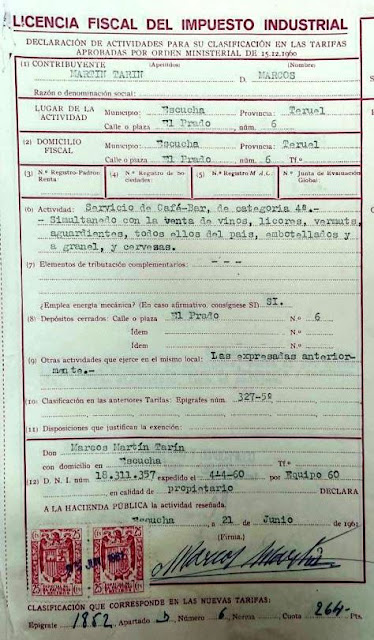 LICENCIA FISCAL DEL IMPUESTO INDUSTRIAL
DECLARACIÓN DE ACTIVIDADES PARA SU CLASIFICACIÓN EN LAS TARIFAS
APROBADAS POR ORDEN MINISTERIAL DE 15.12.1960
(1) CONTRIBUYENTE (Apellidos) (Nombre)
MARTIN TARIN D. MARCOS
Razón o denominación social:
LUGAR DE LA ACTIVIDAD Municipio: Escucha Provincia: Teruel
Calle o plaza El Prado núm. 6
(2) DOMICILIO FISCAL Municipio: Escucha Provincia: Teruel
Calle o plaza El Prado núm. 6 Tfº
(3) N.º Registro-Padrón: Renta (4) N.º Registro de Sociedades: (5) N.º Registro M.d.L. N.º Junta de Evaluación Global:
(6) Actividad: Servicio de Café-Bar, de categoria 4ª.-
- Simultanedo con la venta de vinos, licores, vermuts,
aguardientes, todos ellos del pais, embotellados y
a granel, y cervesas.
(7) Elementos de tributación complementarios: - - -
¿Emplea energía mecánica? (En caso afirmativo, consígnese SI) SI.
(8) Depósitos cerrados: Calle o plaza El Prado N.º 6
Idem N.º
Idem N.º
(9) Otras actividades que ejerce en el mismo local: Las expresadas anterior-
mente.-
(10) Clasificación en las anteriores Tarifas: Epígrafes núm. 327-5ª
(11) Disposiciones que justifican la exención:
Don Marcos Martín Tarín
con domicilio en Escucha Tfº
(12) D. N. I. núm. 18.311.357 expedido el 4-4-60 por Equipo 60
en calidad de propietario DECLARA
A LA HACIENDA PÚBLICA la actividad reseñada.
Escucha, a 21 de Junio de 1961
(Firma.)
Marcos Martín
25 CTS 25
25 CTS 25
CLASIFICACIÓN QUE CORRESPONDE EN LAS NUEVAS TARIFAS:
Epígrafe 1852 Apartado D Número 6 Norma Cuota 264- Pts.